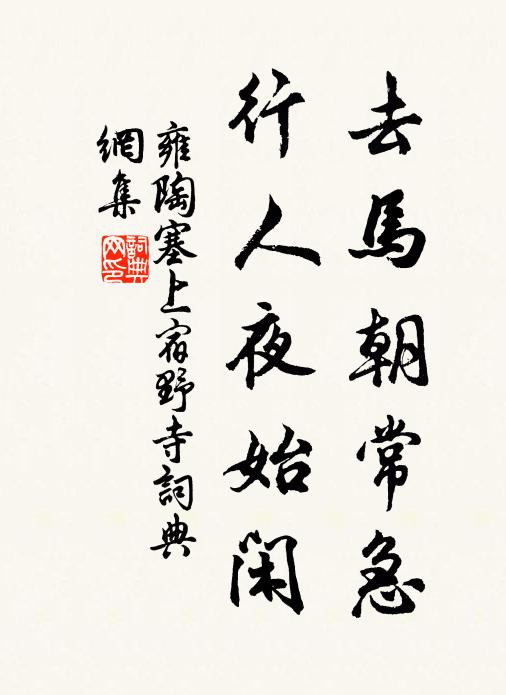 去馬朝常急
行人夜始閑
雍陶塞上宿野寺詞典
網集
詞典
网印